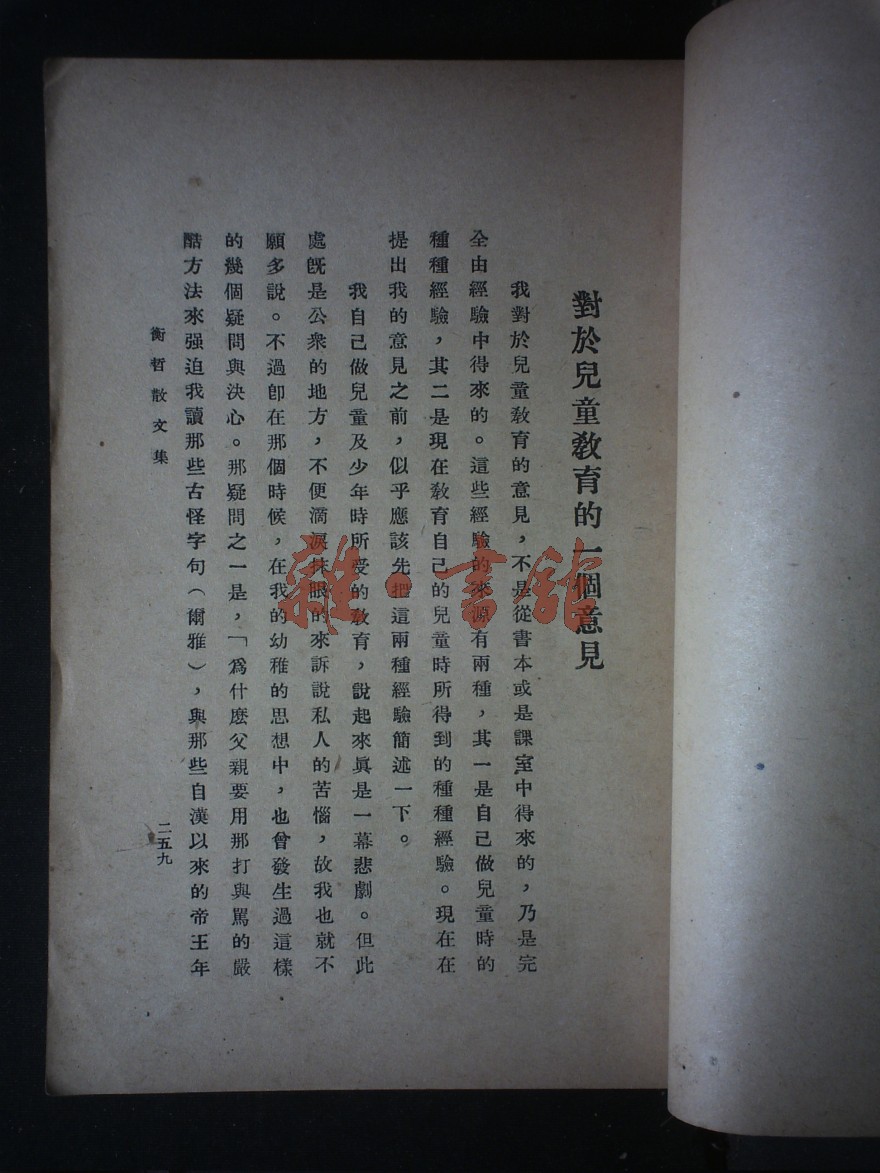 對於兒童敎育的一個意見
我對於兒童敎育的意見，不是從書本或是課室中得來的，乃是完
全由經驗中得來的。這些經驗的來源有兩種，其一是自己做兒童時的
種種經驗，其二是現在敎育自己的兒童時所得到的種種經驗。現在在
提出我的意見之前，似乎應該先把這兩種經驗簡述一下。
我自己做兒童及少年時所受的敎育，說起來眞是一幕悲劇。但此
處旣是公衆的地方，不便滴淚抹眼的來訴說私人的苦惱，故我也就不
願多說。不過卽在那個時候，在我的幼稚的思想中，也曾發生過這樣
的幾個疑問與決心。那疑問之一是，「爲什麽父親要用那打與駡的嚴
酷方法來强迫我讀那些古怪字句（爾雅），與那些自漢以來的帝王年
衡哲散文集
二五九
雜·書館